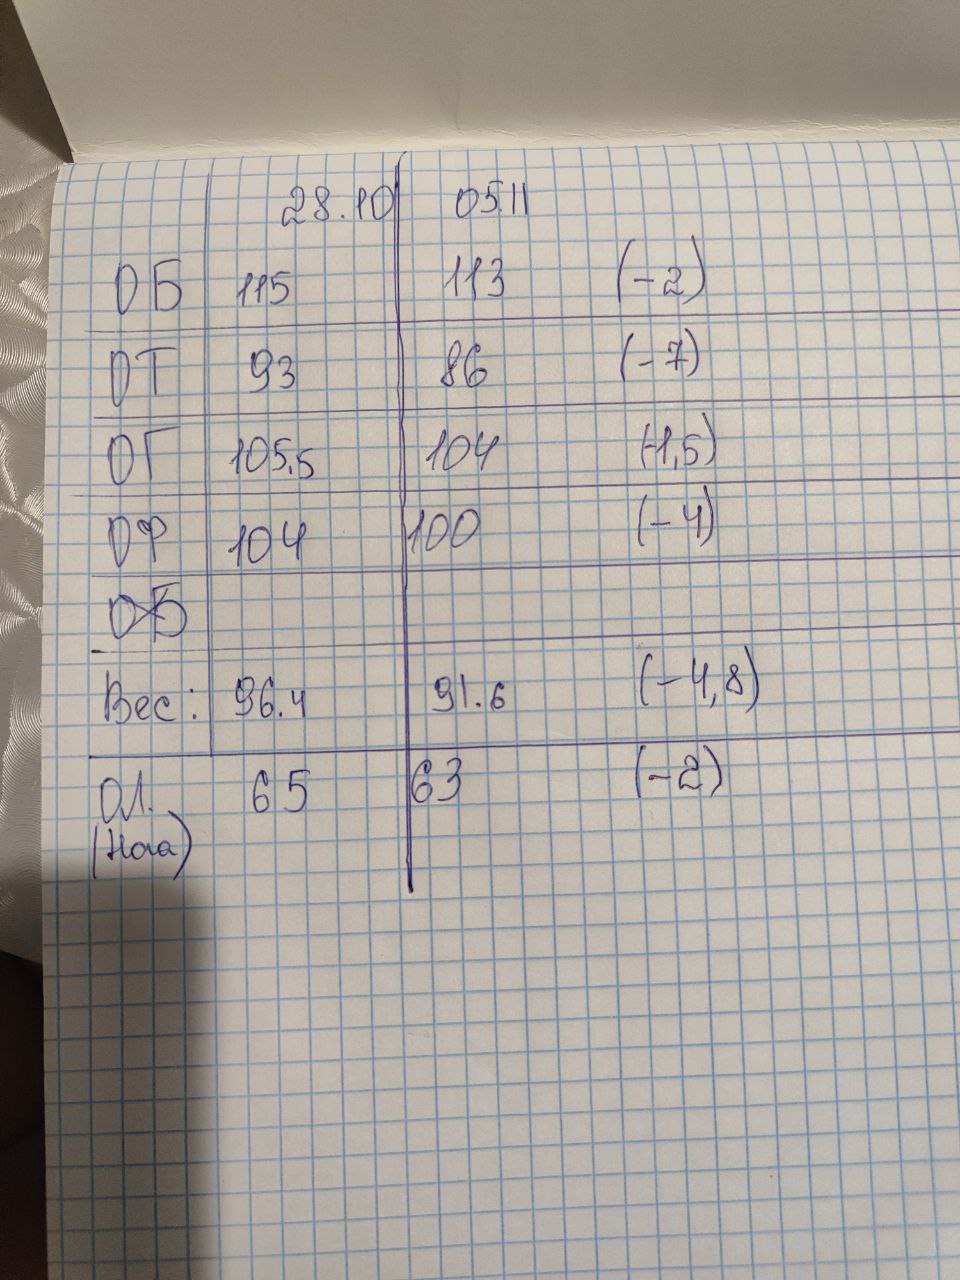 28.10 05.11
ОБ 115 113 (-2)
ОТ 93 86 (-7)
ОГ 105.5 104 (-1,5)
ОФ 104 100 (-4)
ОБ
Вес: 96.4 91.6 (-4,8)
ОЛ. 65 63 (-2)
(Нога)